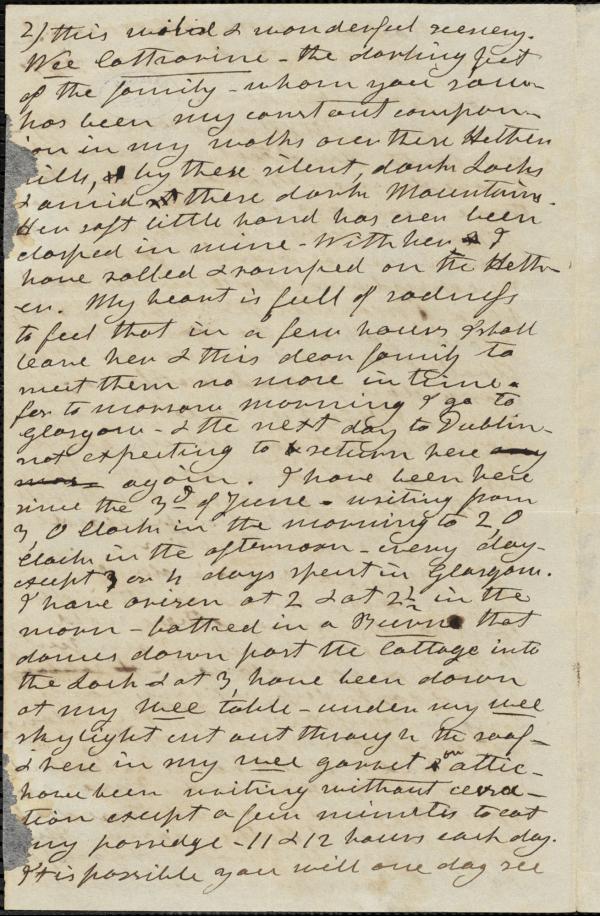 2/ this wild & wonderful scenery.
Wee Catharine - the darling pet
of the family - whom you saw -
has been my constant compan-
ion in my walks over these Hether
hills, & by these silent, dark Lochs
& amid these dark Mountains.
Her soft little hand has even been
clasped in mine - With her, I
have rolled & romped on the Heth-
er. My heart is full of sadness
to feel that in a few hours I shall
leave her & this dear family to
meet them no more in time.
for to morrow morning I go to
Glasgow - & the next day to Dublin -
not expecting to return here any
more again. I have been here
since the 3d of June - writing from
3, O Clock in the morning to 2, O
Clock in the afternoon - every day -
except 3 or 4 days spent in Glasgow.
I have arisen at 2 & at 2½ in the
morn - bathed in a Burn that
comes down past the Cottage into
the Loch & at 3, have been down
at my wee table - under my wee
skylight cut out through the roof -
& here in my wee garret or attic -
have been writing without cessa-
tion except a few minutes to eat
my porridge - 11 & 12 hours each day.
It is possible you will one day see